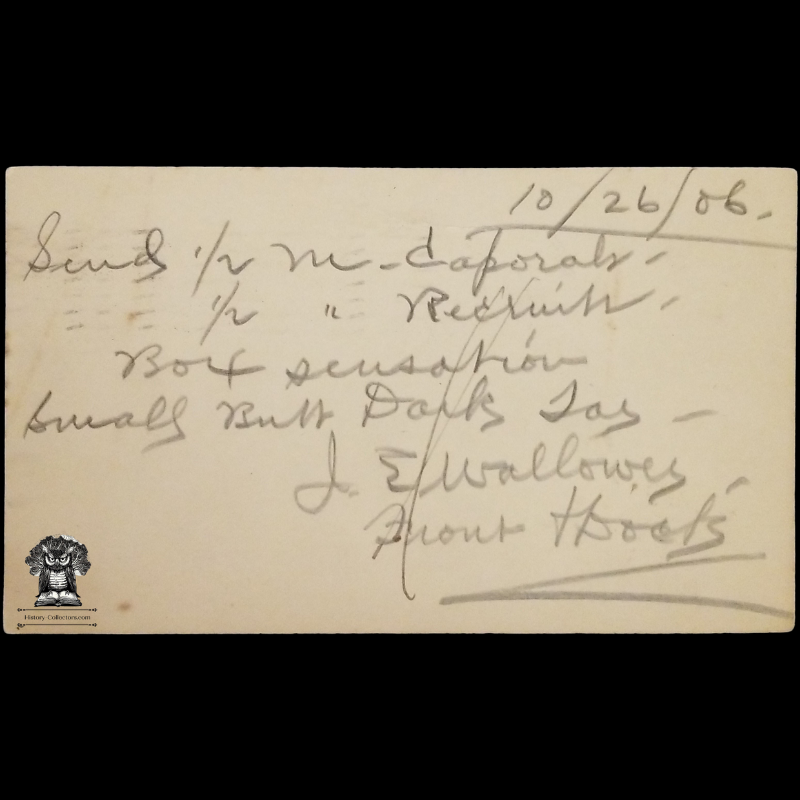 10/26/06.
Send 1/2 M - Caporals -
1/2 " Recruits -
Box sensation
Small Butt Dark
J. E. Wallower,
Front &
History-Collectors.com